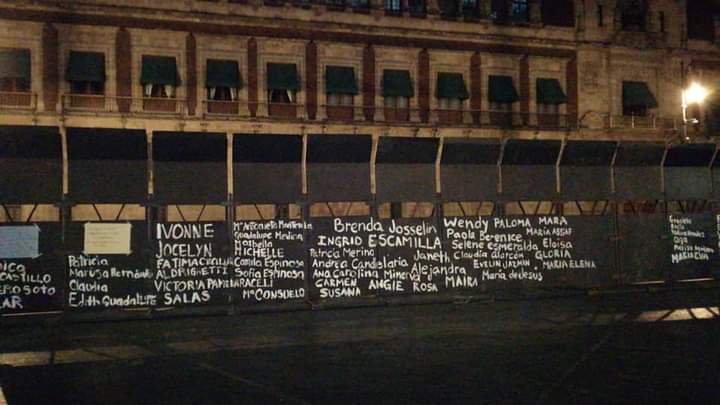 CASTILLO
SOTO
LAR
Patricia
Maryse Hernández
Claudia
Edith Guadalupe
IVONNE
JOCELYN
FATIMA
ALDRIGHETTI
VICTORIA
SALAS
Guadalupe Medina
Marbella
MICHELLE
Camila Espinosa
Sofia Espinosa
ARACELI
Mª CONSUELO
Brenda Josselin
INGRID ESCAMILLA
Patricia Merino
Andrea Candelaria
Ana Carolina Minerva
CARMEN ANGIE ROSA
SUSANA
Janeth
Alejandra
MAIRA
Wendy PALOMA MARA
Paola Berenice MARÍA ASSAF
Selene esmeralda Eloisa
Claudia Alarcón GLORIA
EVELIN JAZMIN MARIA ELENA
María de Jesus
Graciela